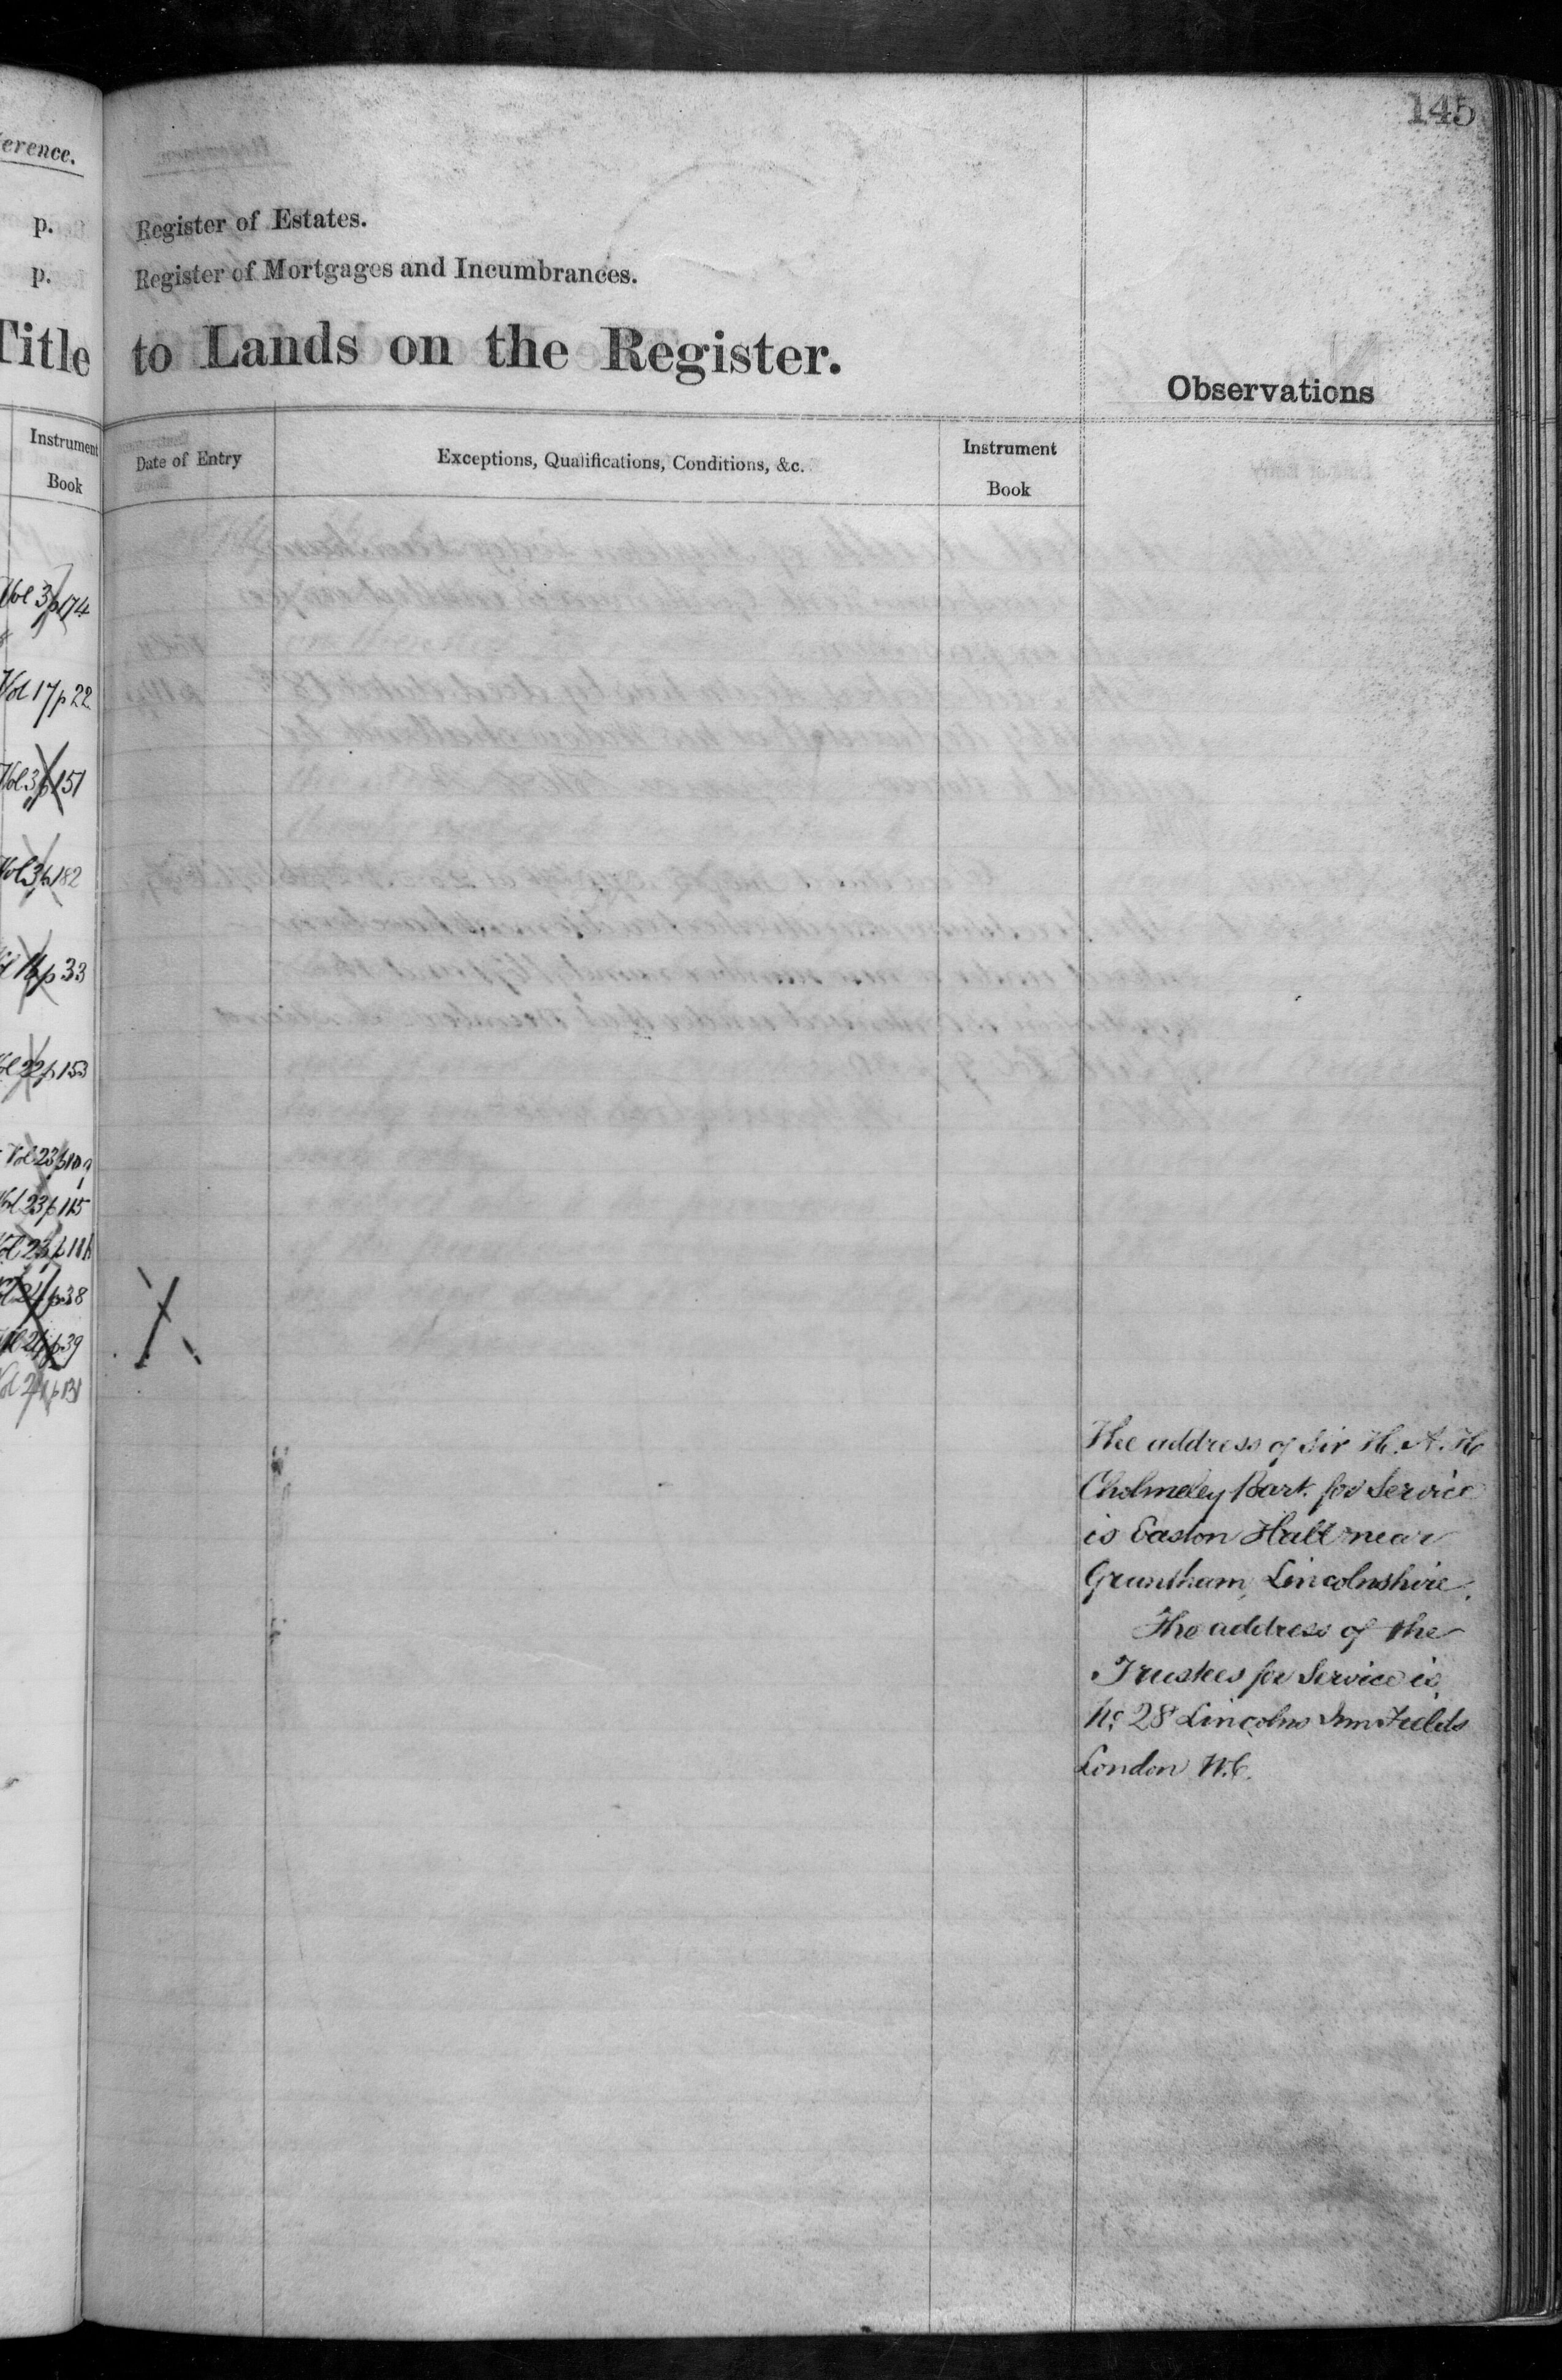 erence.
p.
p.
Title
Instrument
Book
Vol 3 p 174
Vol 17 p 22
Vol 3 p 151
Vol 3 p 182
p 33
p 153
Vol 23 p 109
Vol 23 p 115
Vol 23 p 116
p 38
p 39
145
Register of Estates.
Register of Mortgages and Incumbrances.
to Lands on the Register.
Observations
Date of Entry
Exceptions, Qualifications, Conditions, &c.
Instrument
Book
The address of Sir H. A. H
Cholmeley Bart. for Service
is Easton Hall near
Grantham, Lincolnshire.
The address of the
Trustees for Service is
No. 28 Lincolns Inn Fields
London W.C.